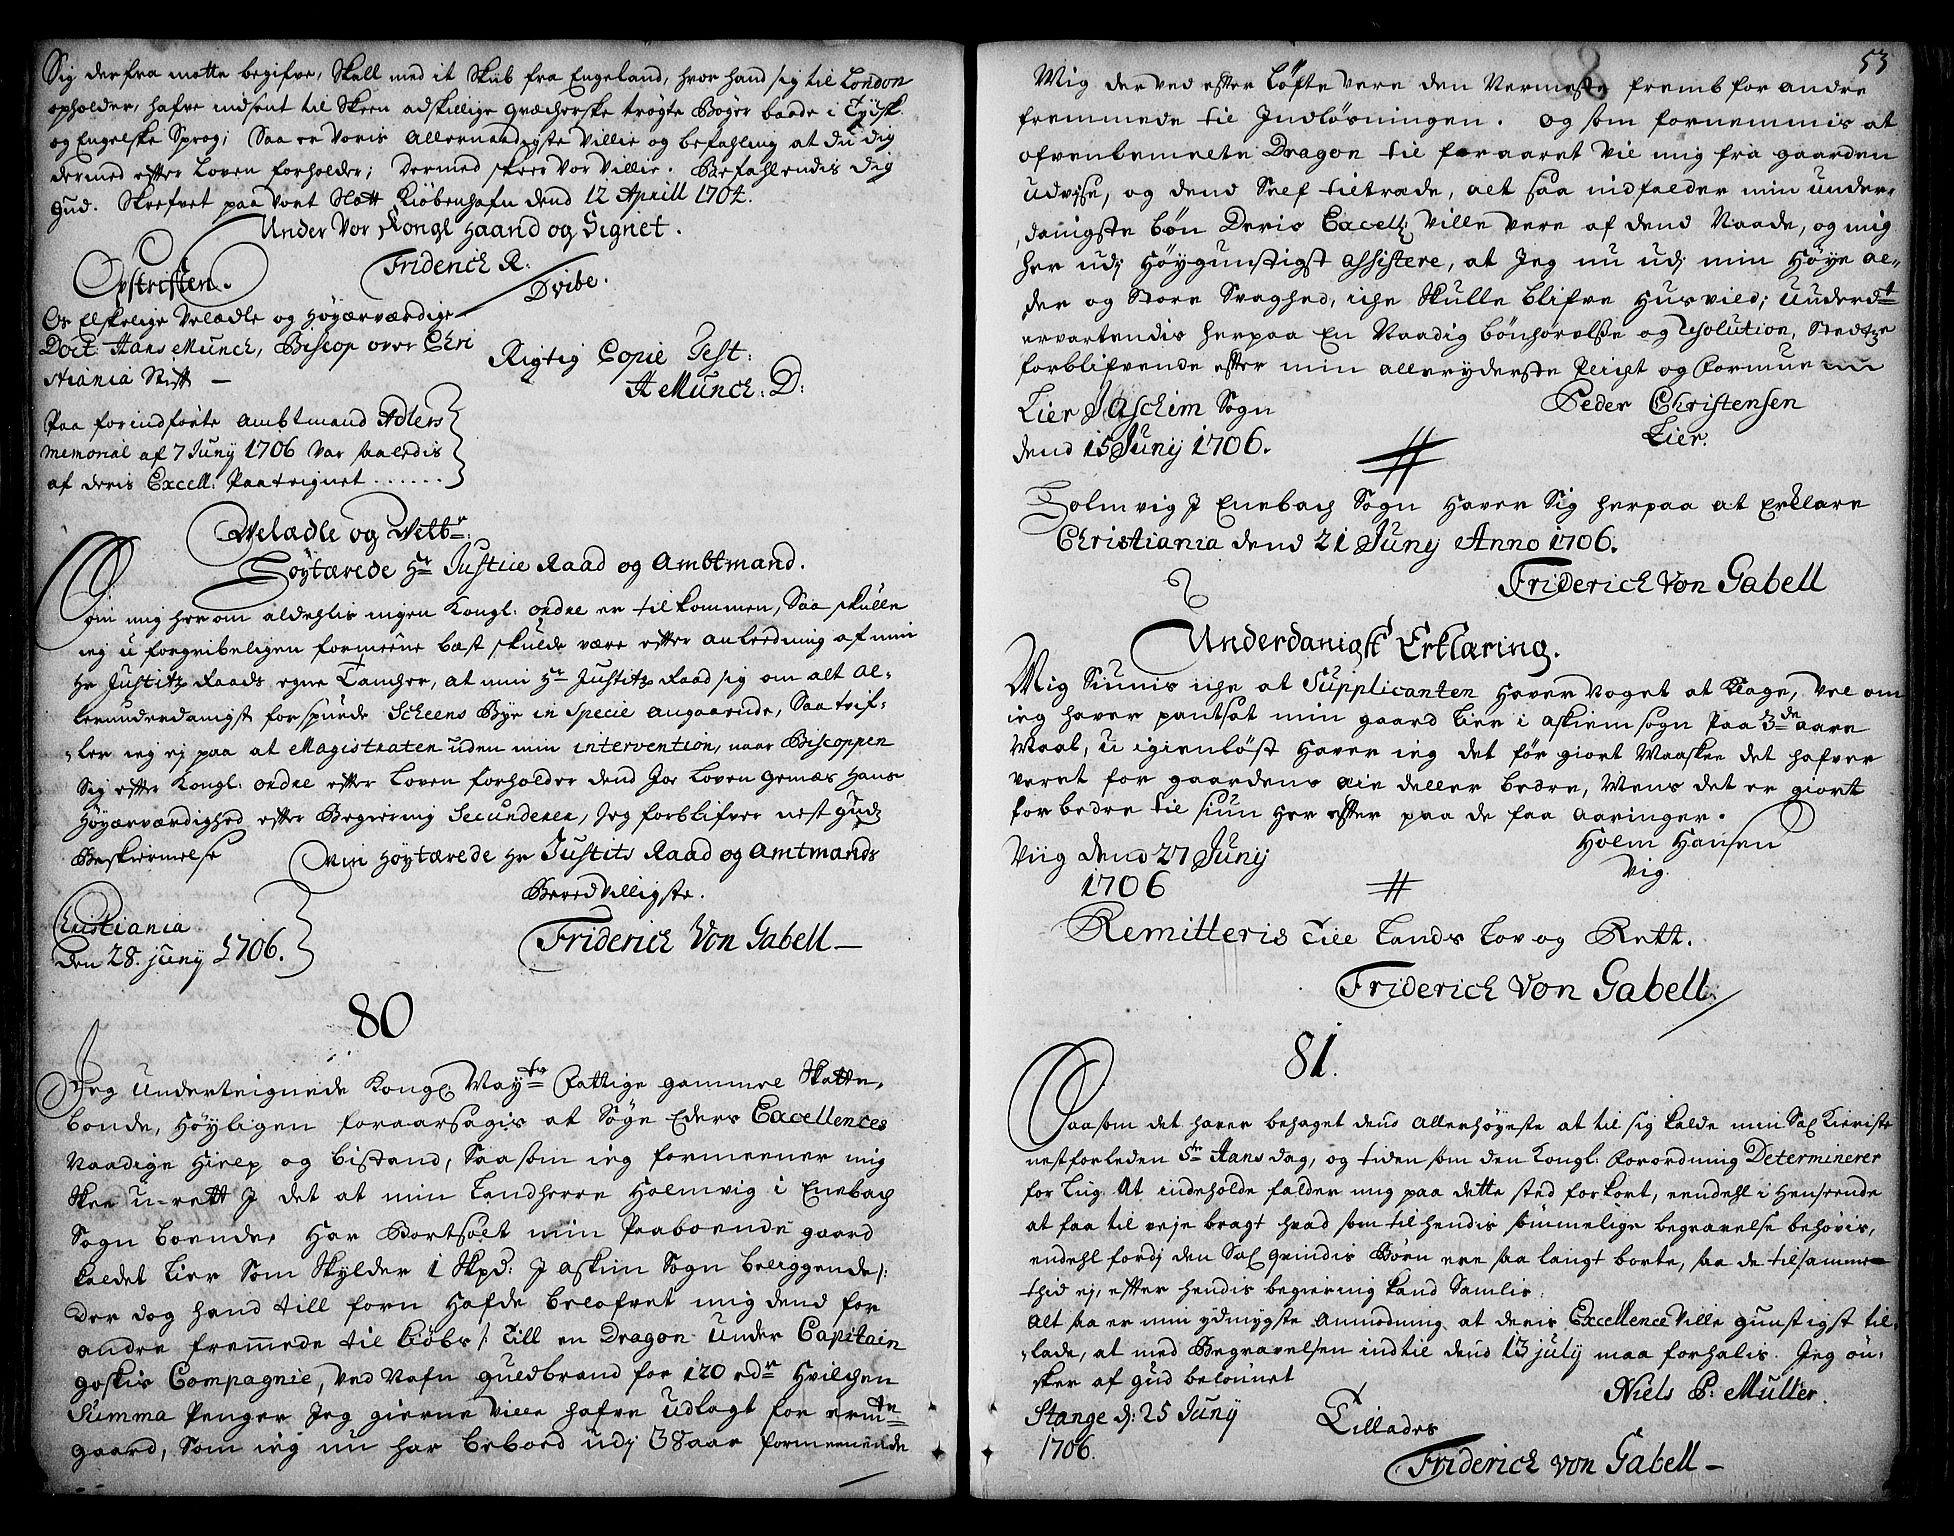 Sig derfra motte begifve, Skall med it Skib fra Engeland, hvor hand sig til London
opholder, hafve indsent til Skeen adskillige qvæcherske trögte Böger baade i Tydsk
og Engelske Sprog; Saa er Voris Allernaadigste Villie og befahling at du dig
dermed efter Loven forholder; Dermed skeer Vor Villie. Befahlendis dig
Gud. Skrefvet paa Vort Slott Kiöbenhafn dend 12 Aprill 1704.
Under Vor Kongl Haand og Signet.
Friderich R.
Opskriften.
Dvibe.
Os Elskelige Velædle og Höyærværdige
Doct: Hans Munch, Biscop over Chri
stiania Stift —
Rigtig Copie Test:
H Munch: D:
Paa forindförte Ambtmand Adlers
Memorial af 7 Juny 1706 Var saaledis
af deris Excell: Paategnet ......
Velædle og Velb:
Höytærede Hr Justice Raad og Ambtmand.
Om mig her om aldehlis ingen Kongl: ordre er tilkommen, Saa skulle
ieg uforgribeligen formeene best skulde være efter anleedning af min
Hr Justitz Raads egne Tancher, at min Hr Justitz Raad sig om alt al-
lerunderdanigst forspurde Scheens Bye in Specie angaaende, Saa tvif-
ler ieg ej paa at Magistraten uden min intervention, naar Biscoppen
Sig efter Kongl: ordre efter Loven forholder dend Jo Loven gemæs Hans
Höyærværdighed efter Begiering Secunderer, Jeg forblifver nest Guds
Beskiermelse
Min Höytærede Hr Justits Raad og Amtmands
Beredvilligste.
Christiania
den 28. juny 1706.
Friderich Von Gabell —
80
Jeg Underteignede Kongl: May:ts fattige gammel Skatte-
bonde, Höyligen foraarsagis at Söge Eders Excellences
Naadige Hielp og bistand, Saasom ieg formeener mig
Skee u-rett J det at min Landherre Holmvig i Enebach
Sogn boende, Har Bortsolt min Paaboende gaard
kaldet Lier Som Skylder 1 Skpd: J Askim Sogn beliggende /:
Der dog hand till forn Hafde belofvet mig dend for
andre fremmede til Kiöbs :/ Till en Dragon under Capitain
goskis Compagnie, Ved Nafn Guldbrand for 120 rdr Hvilchen
Summa Penger Jeg gierne Ville hafve Udlagt for ermte
gaard, Som ieg nu har beboed udj 38 aar formeenende
53
Mig der ved efter Löfte vere den Nermeste fremb for andre
fremmede til Indlösningen. og som fornemmis at
ofvenbemelte Dragon til foraaret Vil mig fra gaarden
udvise, og dend Self tiltrade, alt saa nidfalder min under-
danigste bön Deris Excell: Ville vere af dend Naade, og mig
her udj Höygunstigst assistere, at Jeg nu udj min Höye al-
der og Store Svaghed, iche Skulle blifve Husvild; Underdt
ervartendis herpaa En Naadig bönhörelse og resolution, Stedtze
forblifvende efter min alleryderste Pligt og formue
Lier J Aschim Sogn
dend 15 Juny 1706.
Peder Christensen
Lier.
Holmvig J Enebach Sogn Haver Sig herpaa at Erklare
Christiania dend 21 Juny Anno 1706.
Friderich Von Gabell
Underdanigst Erklæring.
Mig Siunis iche at Supplicanten Haver Noget at Klage, Vel om
ieg haver pantsat min gaard Lier i Askiem sogn Paa 3de aars
Maal, u igienlöst Haver ieg det för giort Maaskee det hafver
veret for gaardens Eie deller bedre, Mens det er giort
forbedre til siun her efter paa de faa aaringer.
Viig dend 27 Junij
1706
Holm Hansen
Vig.
Remitteris Till Lands Lov og Rett.
Friderich Von Gabell
81.
Saasom det haver behaget deus Allerhöyeste at til sig kalde min Sal Kieriste
nestforleden St Hans dag, og tiden som den Kongl: Forordning Determinerer
for Lüg At indeholde falder mig paa dette sted for kort, eendehl i Henseende
at faa til veje bragt hvad som til hendis sömmelige begravelse behövis,
endehl fordj den Sal Qvindis Börn ere saa langt borte, saa de tilsamme
thid ej, efter hendis begiering kand Samlis.
Alt saa er min ydmygste Anmodning at deris Excellence Ville gunstigst til-
lade, at med Begravelsen indtil dend 13 july maa forhalis. Jeg ön-
sker af Gud belönnet
Niels P: Müller.
Stange d: 25 Juny
1706.
Tillades
Friderich von Gabell —